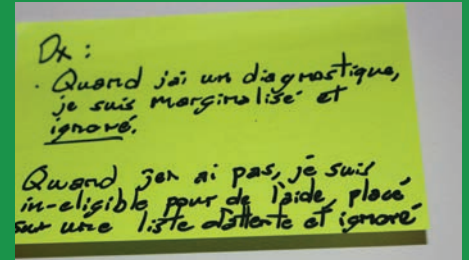 Dx :
· Quand j'ai un diagnostique,
je suis marginalisé et
ignoré.
Quand j'en ai pas, je suis
in-eligible pour de l'aide, placé
sur une liste d'attente et ignoré